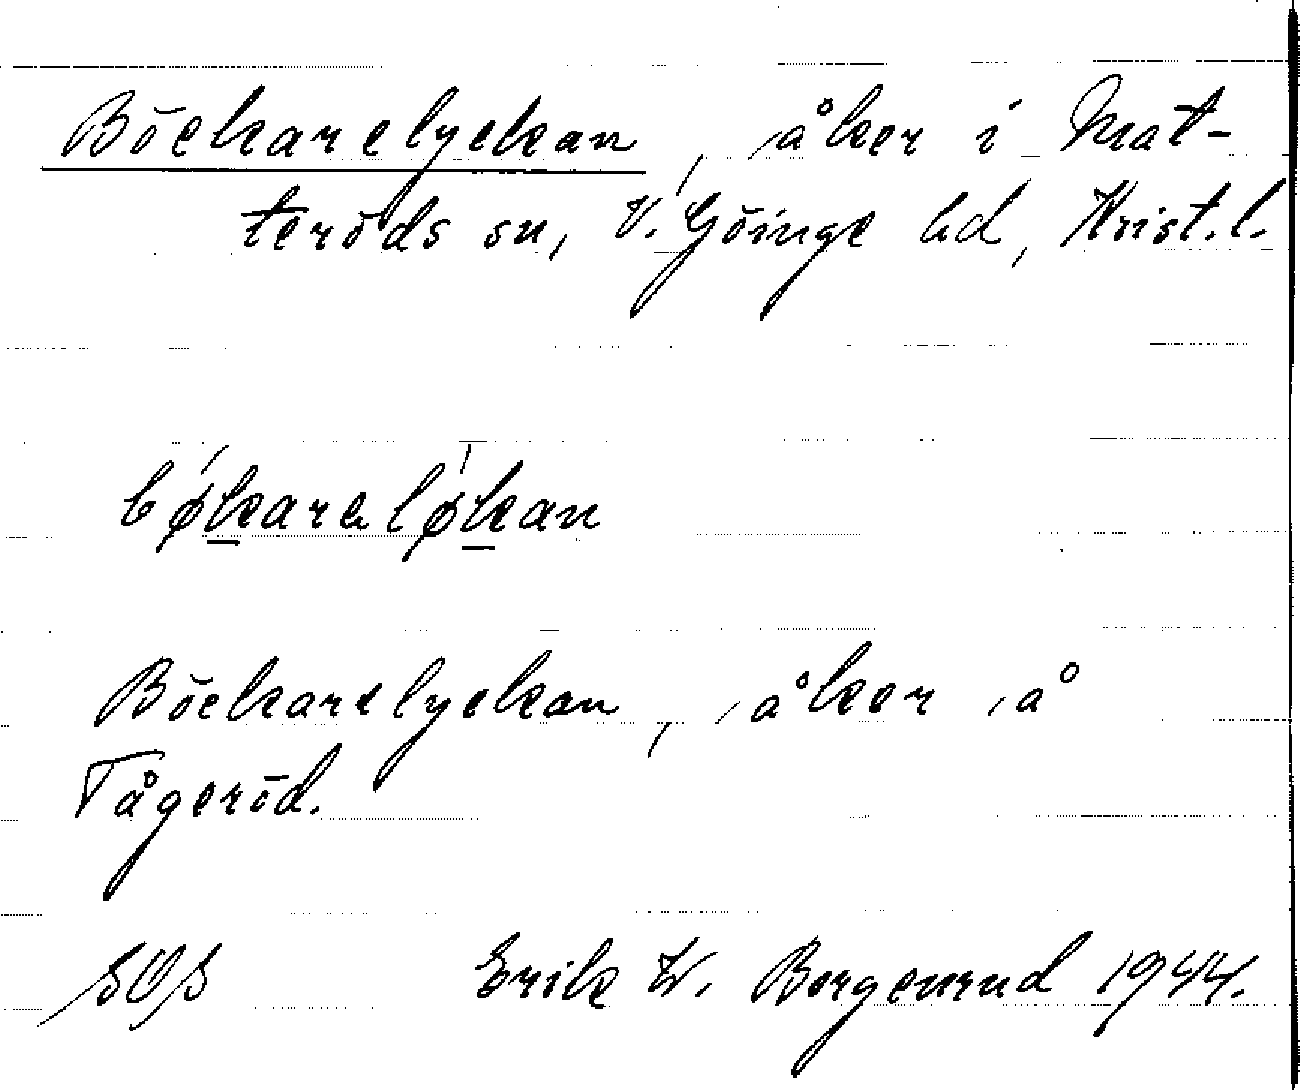 Böckarelyckan, åker i Mat-
teröds sn, V. Göinge hd, Krist.l.
bǿkarelǿkan
Böckarelyckan, åker å
Tågeröd.
SOS Erik W. Bergenrud 1944.